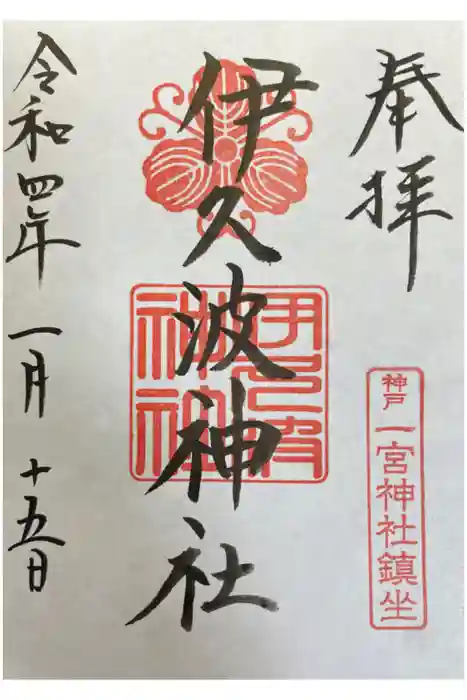 奉拝
神戸 一宮神社鎮坐
伊久波神社
伊久波神社
令和四年 一月 十五日